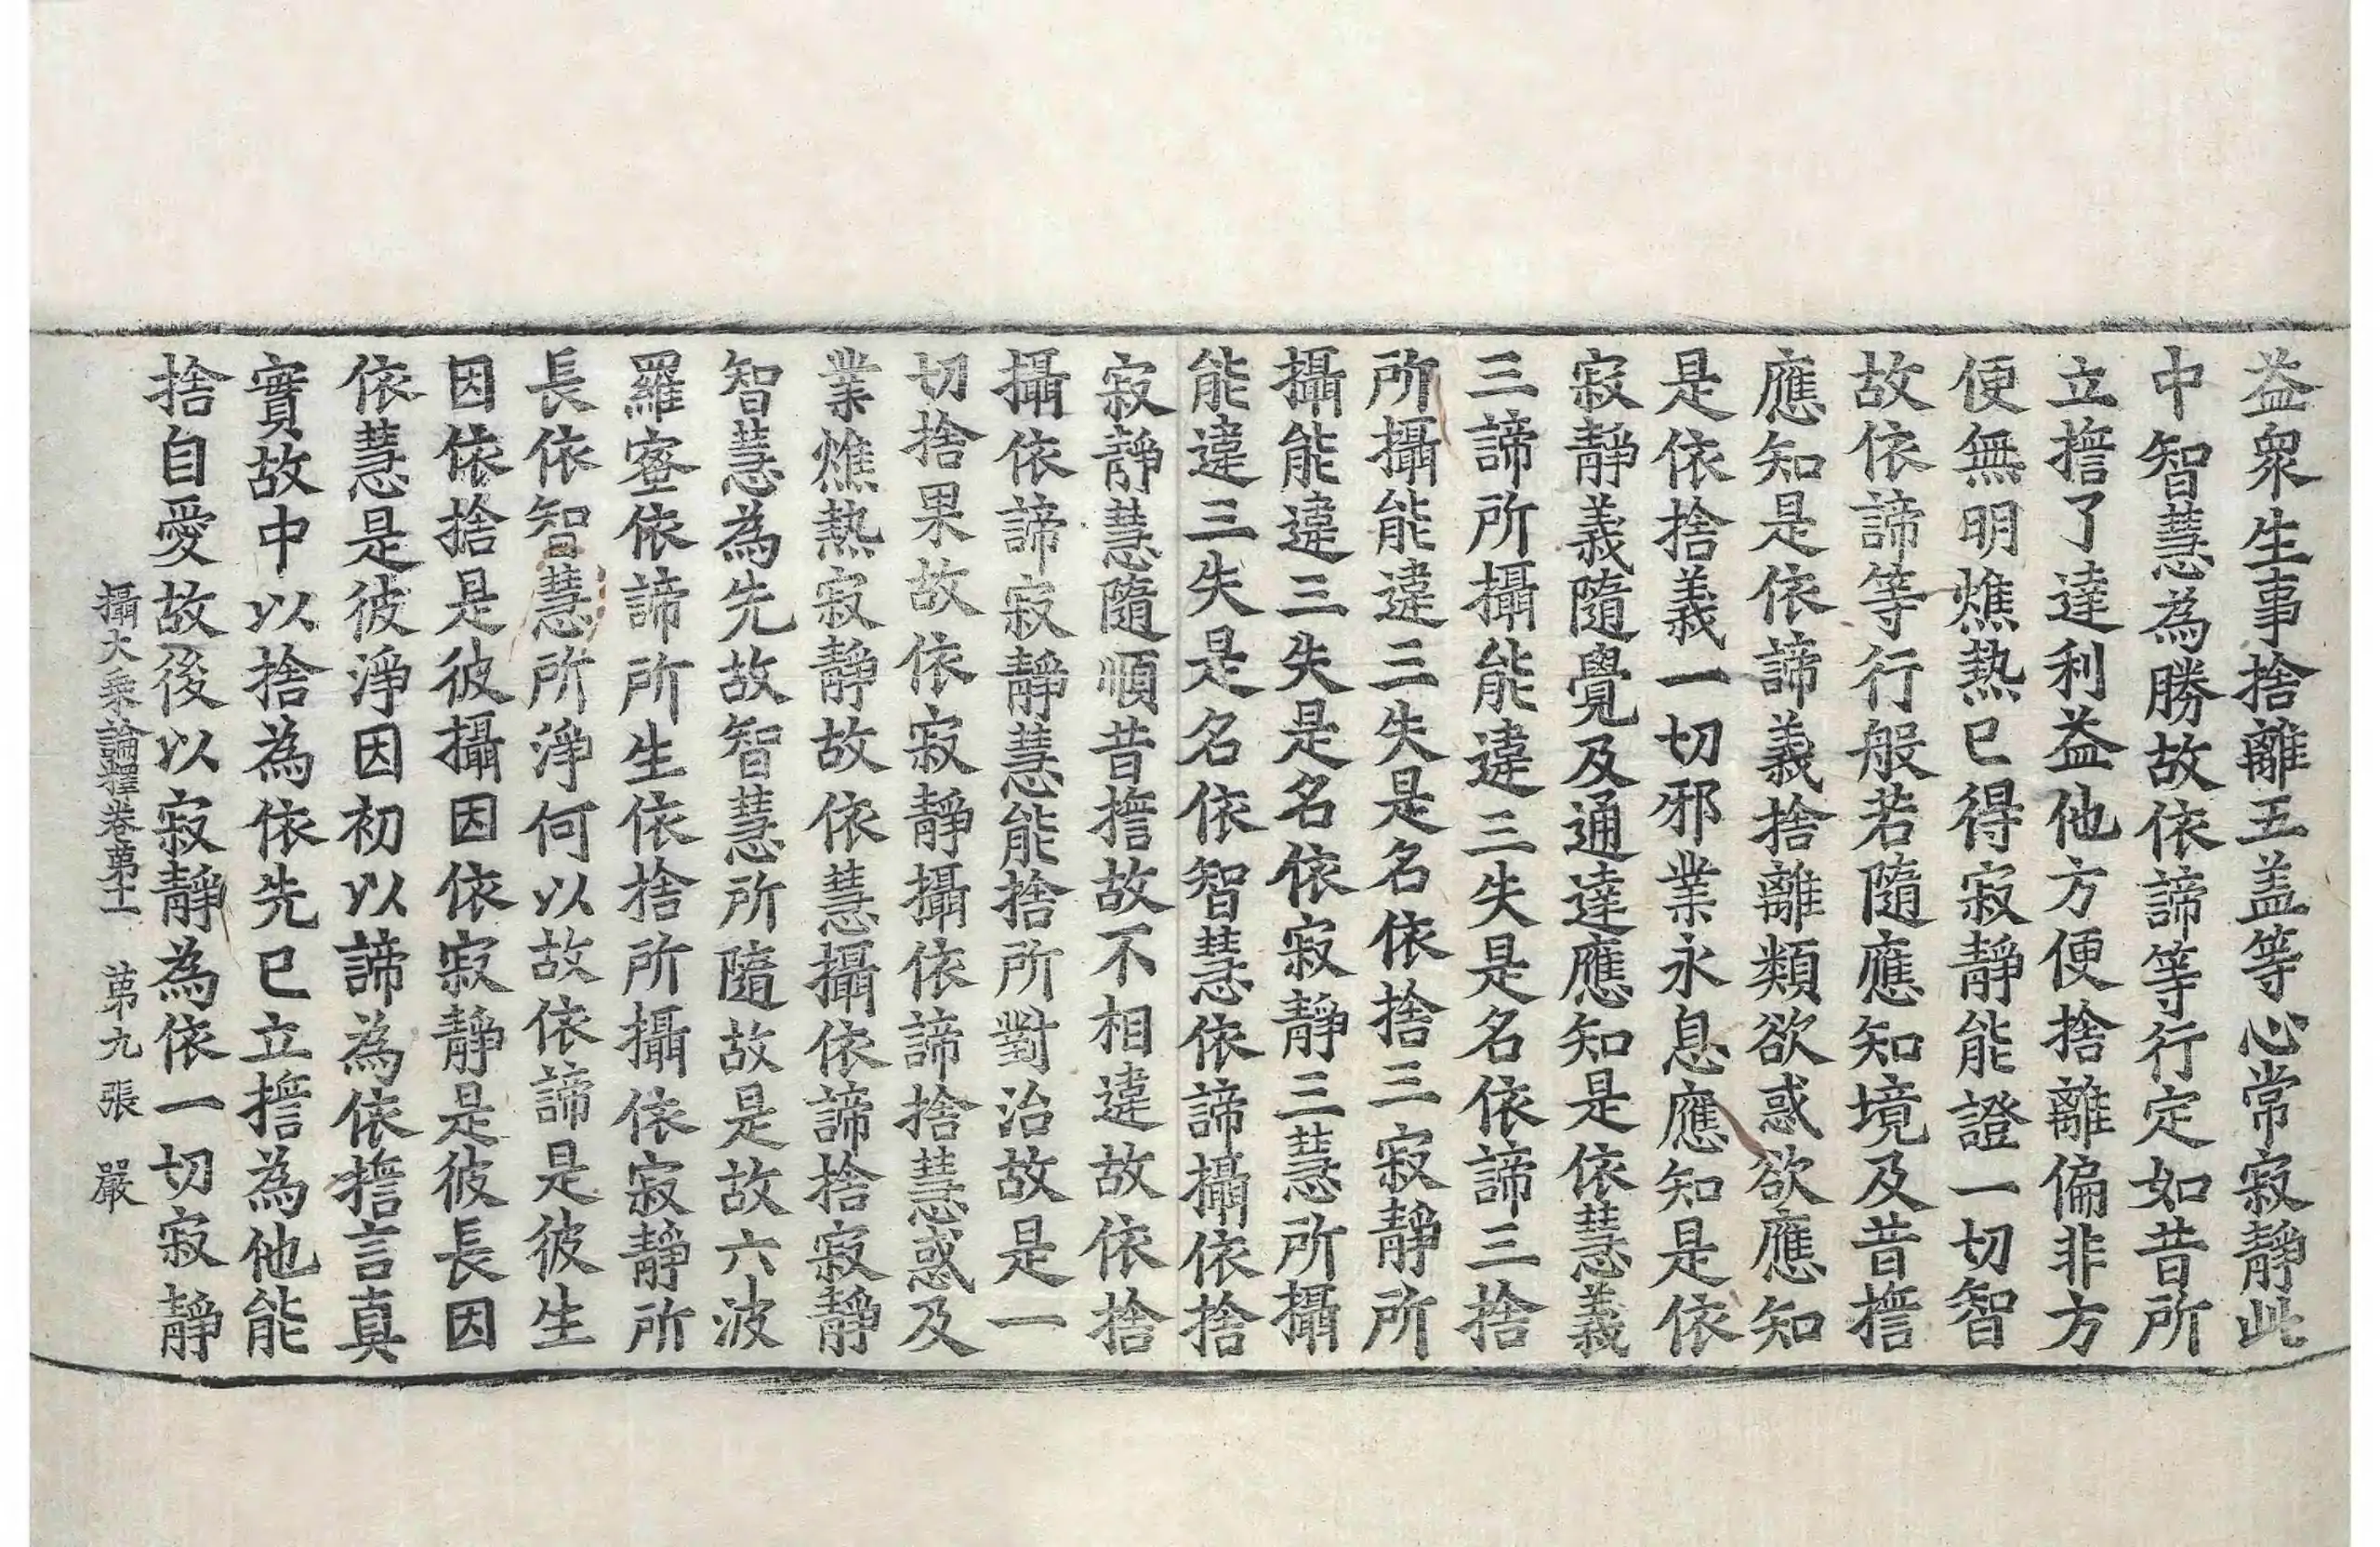 益衆生事捨離五盖等心常寂靜此
中智慧為勝故依諦等行定如昔所
立誓了達利益他方便捨離偏非方
便無明燋熱已得寂靜能證一切智
故依諦等行般若隨應知境及昔誓
應知是依諦義捨離類欲惑欲應知
是依捨義一切邪業永息應知是依
寂靜義隨覺及通達應知是依慧義
三諦所攝能違三失是名依諦三捨
所攝能違三失是名依捨三寂靜所
攝能違三失是名依寂靜三慧所攝
能違三失是名依智慧依諦攝依捨
寂靜慧隨順昔誓故不相違故依捨
攝依諦寂靜慧能捨所對治故是一
切捨果故依寂靜攝依諦捨慧惑及
業燋熱寂靜故依慧攝依諦捨寂靜
智慧為先故智慧所隨故是故六波
羅蜜依諦所生依捨所攝依寂靜所
長依智慧所淨何以故依諦是彼生
因依捨是彼攝因依寂靜是彼長因
依慧是彼淨因初以諦為依誓言真
實故中以捨為依先已立誓為他能
捨自愛故後以寂靜為依一切寂靜
攝大乘論釋卷第十一　第九張　嚴